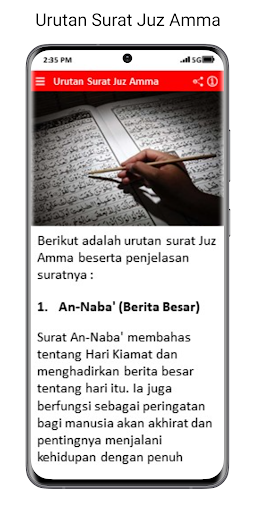 Urutan Surat Juz Amma
2:35 PM
5G
Urutan Surat Juz Amma
Berikut adalah urutan surat Juz
Amma beserta penjelasan
suratnya :
1. An-Naba' (Berita Besar)
Surat An-Naba' membahas
tentang Hari Kiamat dan
menghadirkan berita besar
tentang hari itu. Ia juga
berfungsi sebagai peringatan
bagi manusia akan akhirat dan
pentingnya menjalani
kehidupan dengan penuh